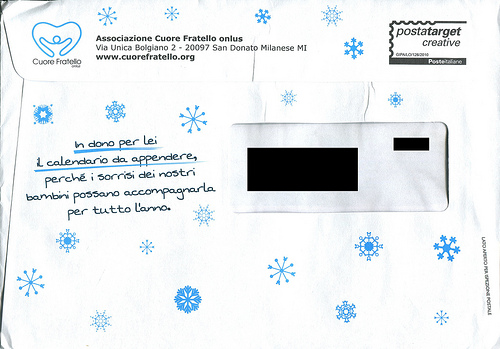 Cuore Fratello
onlus
Associazione Cuore Fratello onlus
Via Unica Bolgiano 2 - 20097 San Donato Milanese MI
www.cuorefratello.org
postatarget
creative
Posteitaliane
In dono per lei
il calendario da appendere,
perché i sorrisi dei nostri
bambini possano accompagnarla
per tutto l'anno.
LATO APERTO PER ISPEZIONE POSTALE